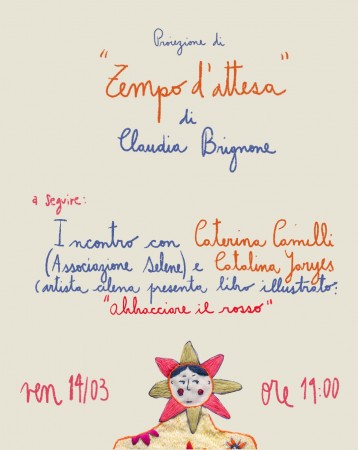 Proiezione di
"Tempo d'attesa"
di
Claudia Brignone
a seguire:
Incontro con Caterina Camilli
(Associazione Selene) e Catalina
(artista cilena presenta libro illustrato:
"abbracciare il rosso"
ven 14/03
ore 19:00